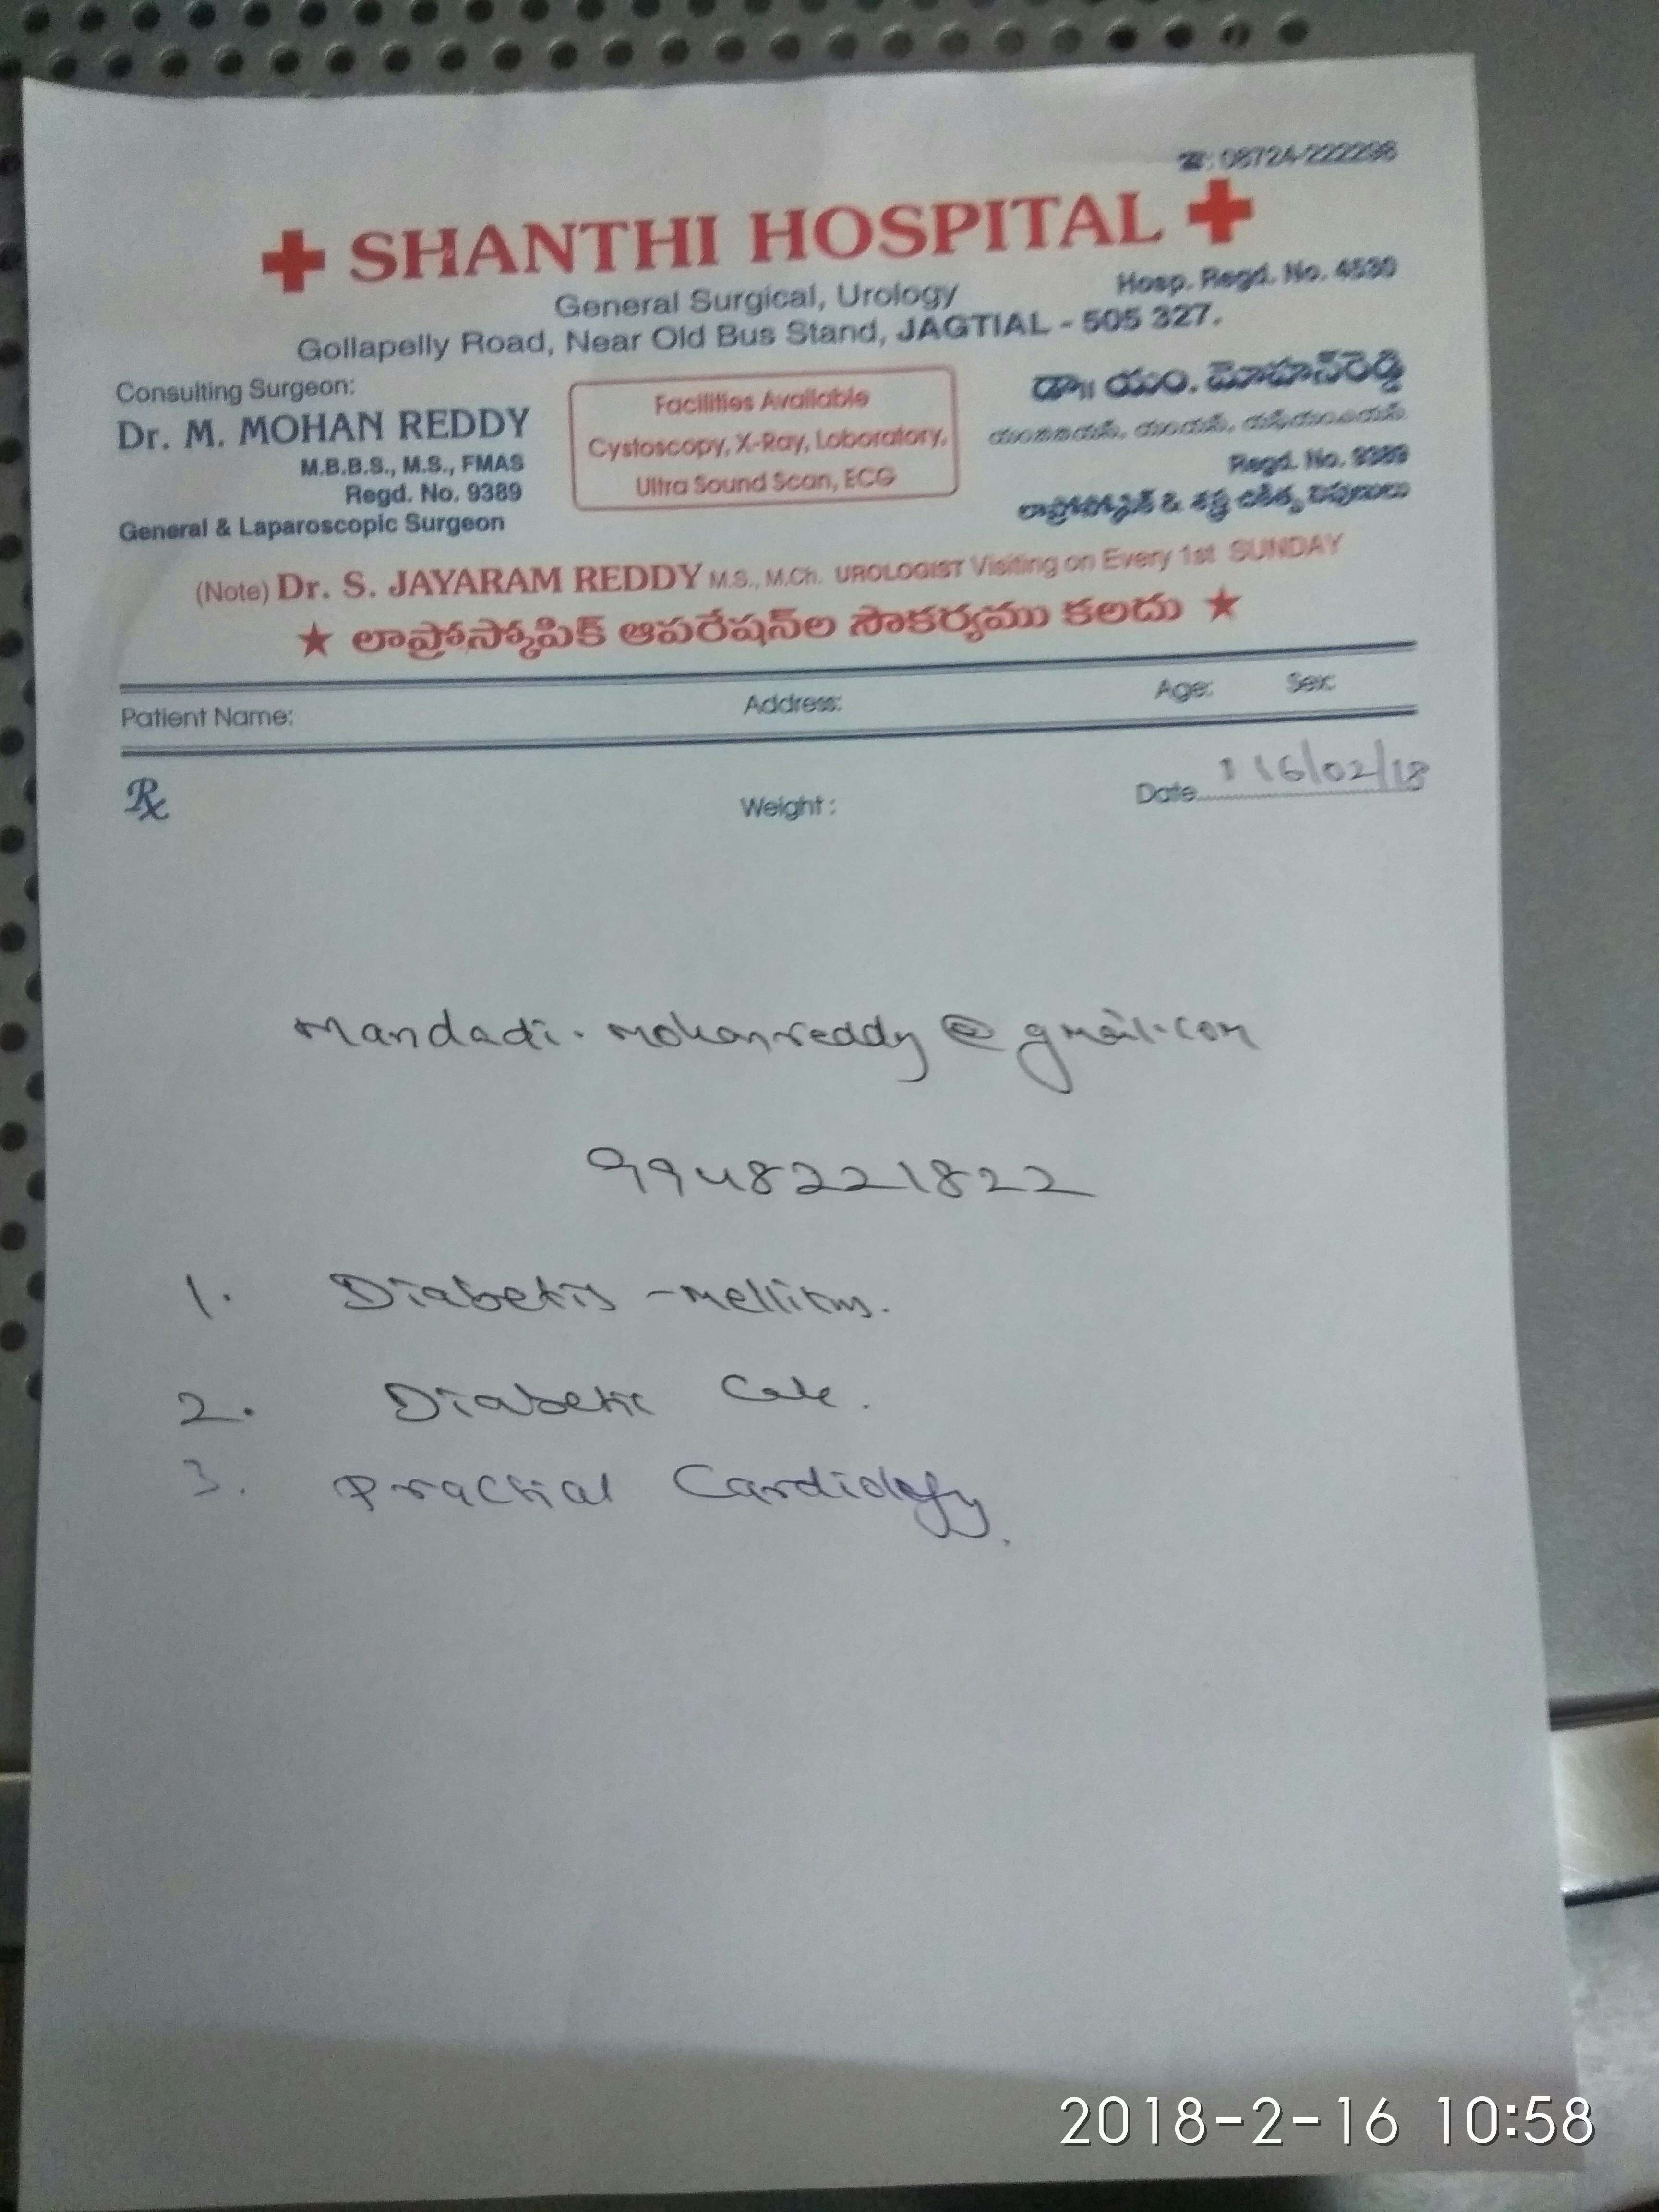 ☎: 08724-222298
SHANTHI HOSPITAL
General Surgical, Urology
Hosp. Regd. No. 4530
Gollapelly Road, Near Old Bus Stand, JAGTIAL - 505 327.
Consulting Surgeon:
Dr. M. MOHAN REDDY
M.B.B.S., M.S., FMAS
Regd. No. 9389
General & Laparoscopic Surgeon
Facilities Available
Cystoscopy, X-Ray, Loboratory,
Ultra Sound Scan, ECG
డా॥ యం. మోహన్‌రెడ్డి
Regd. No. 9389
లాప్రోస్కోపిక్ & శస్త్ర చికిత్స నిపుణులు
(Note) Dr. S. JAYARAM REDDY M.S., M.Ch. UROLOGIST Visiting on Every 1st SUNDAY
★ లాప్రోస్కోపిక్ ఆపరేషన్‌ల సౌకర్యము కలదు ★
Patient Name: Address: Age: Sex:
Rx Weight : Date 16/02/18
Mandadi.mohanreddy@gmail.com
9948221822
1. Diabetis - mellitus.
2. Diabetic
3. Practial Cardiology.
2018-2-16 10:58